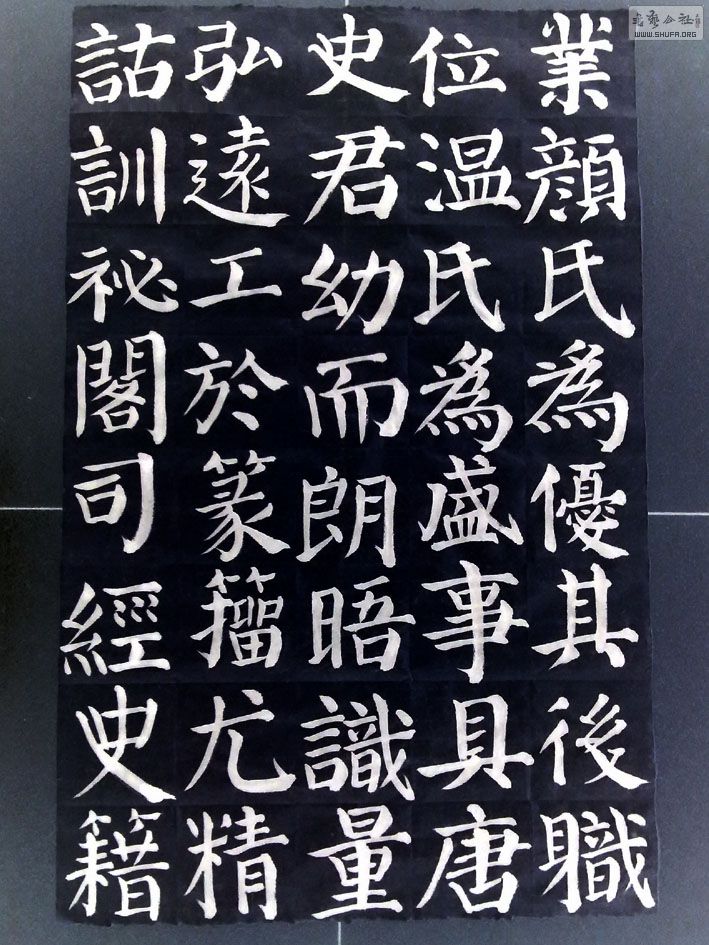 業顔氏為優其後職
位温氏為盛事具唐
史君幼而朗晤識量
弘遠工於篆籀尤精
詁訓祕閣司經史籍
WWW.SHUFA.ORG